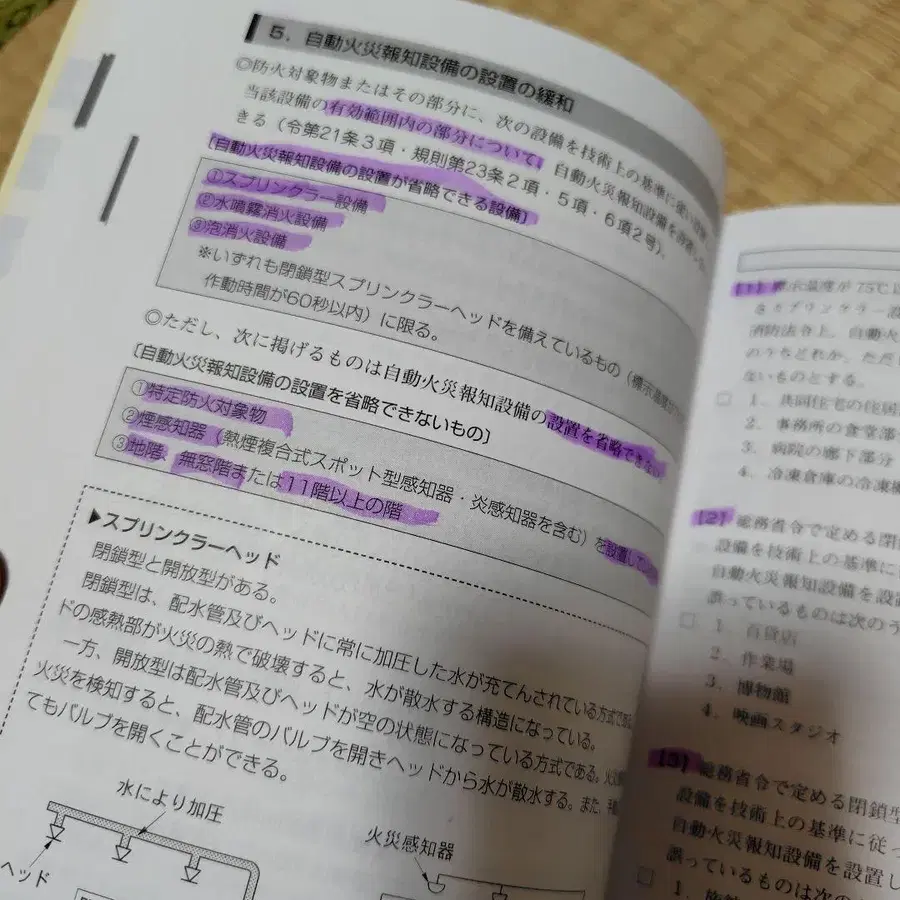 5. 自動火災報知設備の設置の緩和
◎防火対象物またはその部分に、次の設備を技術上の基準に従い設置
当該設備の有効範囲内の部分について、自動火災報知設備を設置し
きる（令第21条3項・規則第23条2項・5項・6項2号）。
〔自動火災報知設備の設置が省略できる設備〕
①スプリンクラー設備
②水噴霧消火設備
③泡消火設備
※いずれも閉鎖型スプリンクラーヘッドを備えているもの（標示温度が
作動時間が60秒以内）に限る。
◎ただし、次に掲げるものは自動火災報知設備の設置を省略できない
〔自動火災報知設備の設置を省略できないもの〕
①特定防火対象物
②煙感知器（熱煙複合式スポット型感知器・炎感知器を含む）を設置して
③地階、無窓階または11階以上の階
▶スプリンクラーヘッド
閉鎖型と開放型がある。
閉鎖型は、配水管及びヘッドに常に加圧した水が充てんされている方式で
ドの感熱部が火災の熱で破壊すると、水が散水する構造になっている。
一方、開放型は配水管及びヘッドが空の状態になっている方式である。
火災を検知すると、配水管のバルブを開きヘッドから水が散水する。また、
てもバルブを開くことができる。
水により加圧
ヘッド
火災感知器
【1】標示温度が75℃以
消防法令上、自動火
のうちどれか。ただ
ないものとする。
□ 1. 共同住宅の住居
2. 事務所の食堂部
3. 病院の廊下部分
4. 冷凍倉庫の冷凍
【2】総務省令で定める閉
設備を技術上の基準に
自動火災報知設備を設
誤っているものは次のう
□ 1. 百貨店
2. 作業場
3. 博物館
4. 映画スタジオ
【3】総務省令で定める閉鎖型
設備を技術上の基準に従っ
自動火災報知設備を設置し
誤っているものは次の
□ 1.